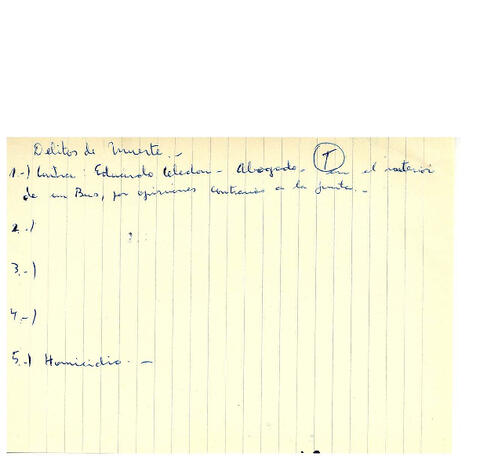 Delitos de Muerte.-
1.-) Contra: Eduardo Celedon - Abogado. (T) en el interior
de un Bus, por opiniones contrarias a la junta.-
2.-)
3.-)
4.-)
5.-) Homicidio. -